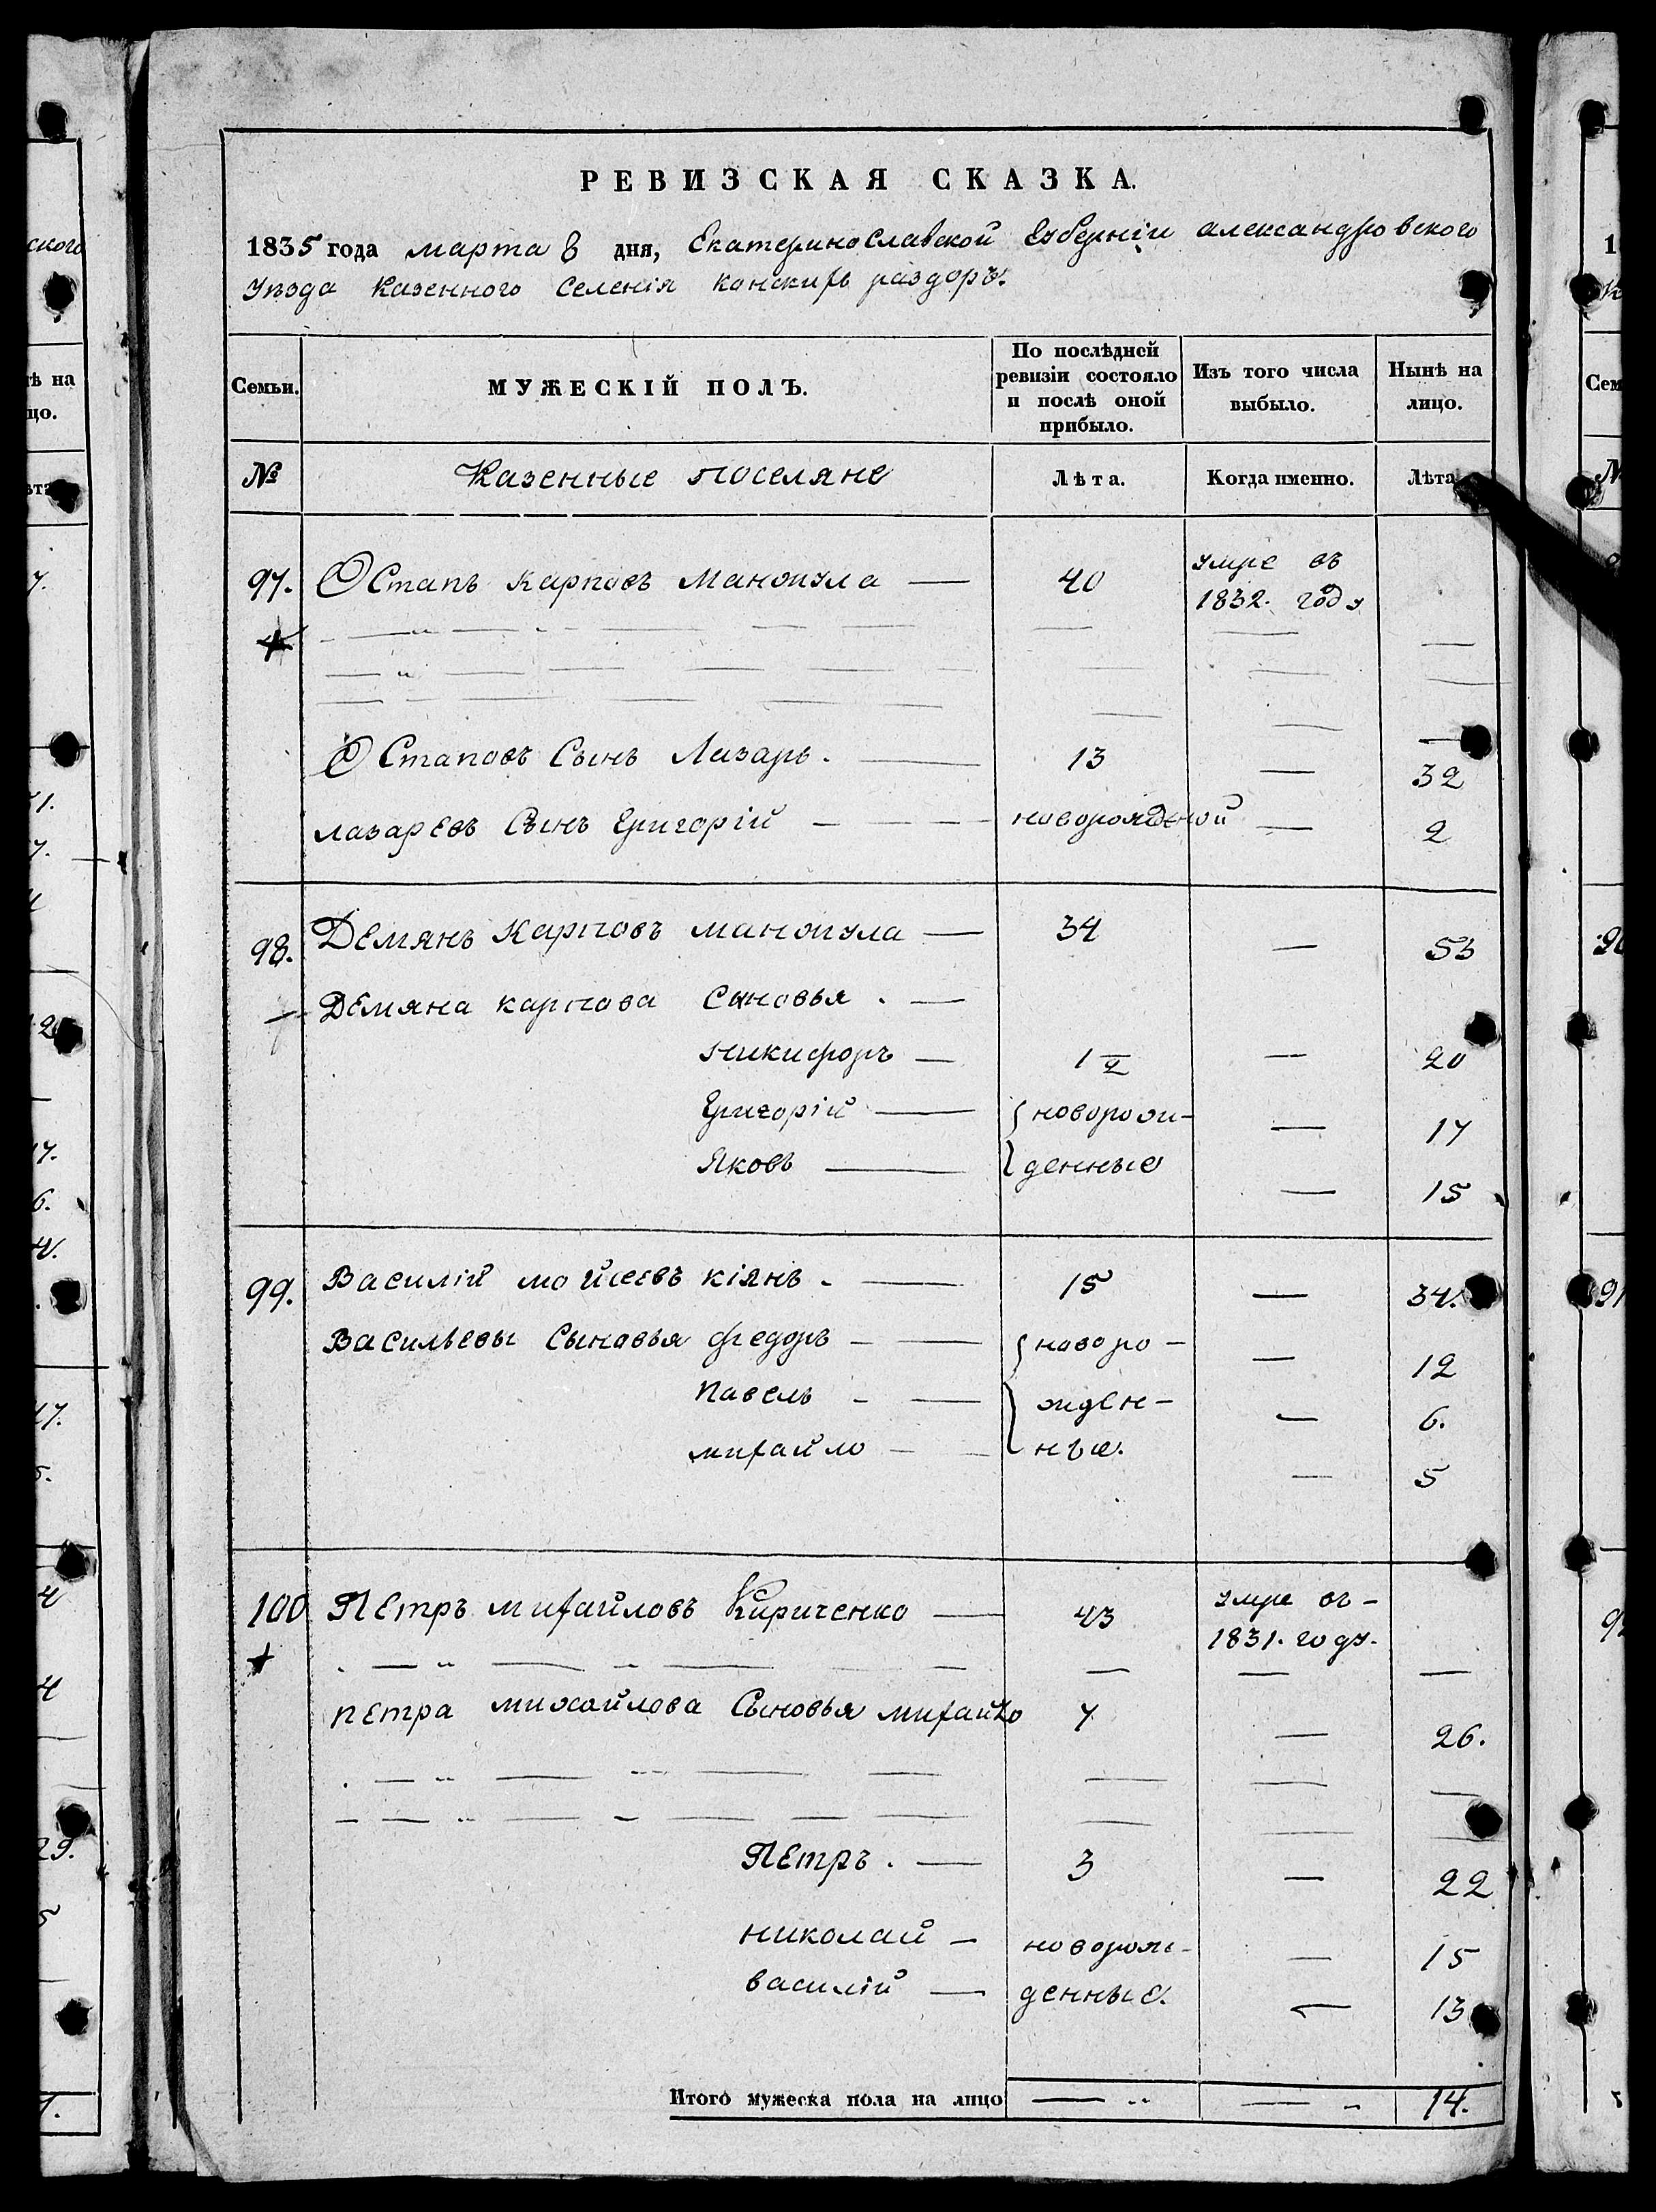 РЕВИЗСКАЯ СКАЗКА.
1835 года марта 8 дня, Екатеринославской Губерніи александровского
уѣзда Казенного Селенія Конскихъ раздоръ.
Семьи. МУЖЕСКІЙ ПОЛЪ. По послѣдней ревизіи состояло и послѣ оной прибыло. Изъ того числа выбыло. Нынѣ на лицо.
№ Казенные поселяне Лѣта. Когда именно. Лѣта
97. Остапъ Карповъ Манжула — 40 умре въ
1832. году
Остаповъ Сынъ Лазарь. — 13 — 32
лазаревъ Сынъ Григорій — новорожденой — 2
98. Демянъ Карповъ манжула — 34 — 53
Демяна карпова Сыновья . —
никифоръ — 1 ½ — 20
Григорій — новорож- — 17
Яковъ — денные — 15
99. Василій мойсеевъ кіянъ. — 15 — 34.
Васильевы Сыновья федоръ — новоро- — 12
павелъ — жден- — 6.
михайло — ные. — 5
100 Петръ михайловъ Кириченко — 43 умре въ-
1831. году.
петра михайлова Сыновья михайло 7 — 26.
Петръ. — 3 — 22
николай — новорож- — 15
василій — денные. — 13
Итого мужеска пола на лицо — — 14.